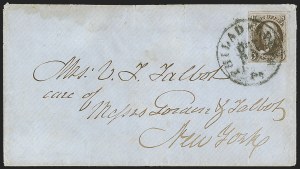 PHILAD
Pa
Mrs. V. F. Talbot
care of
Messrs Gordon & Talbot
New York